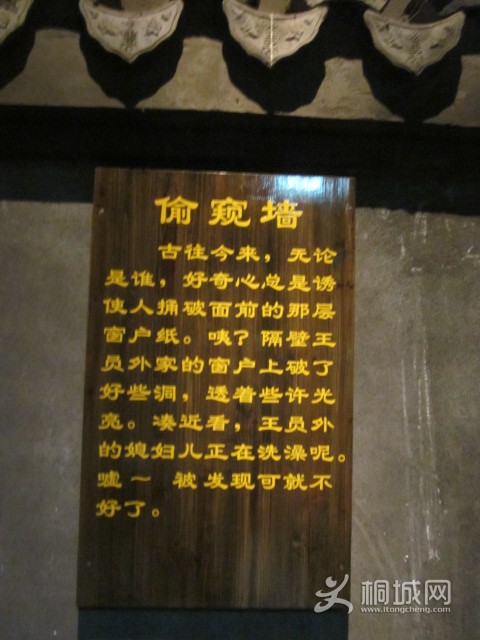 偷窥墙
古往今来，无论
是谁，好奇心总是诱
使人捅破面前的那层
窗户纸。咦？隔壁王
员外家的窗户上破了
好些洞，透着些许光
亮。凑近看，王员外
的媳妇儿正在洗澡呢。
嘘～ 被发现可就不
好了。
桐城网
www.itongcheng.com